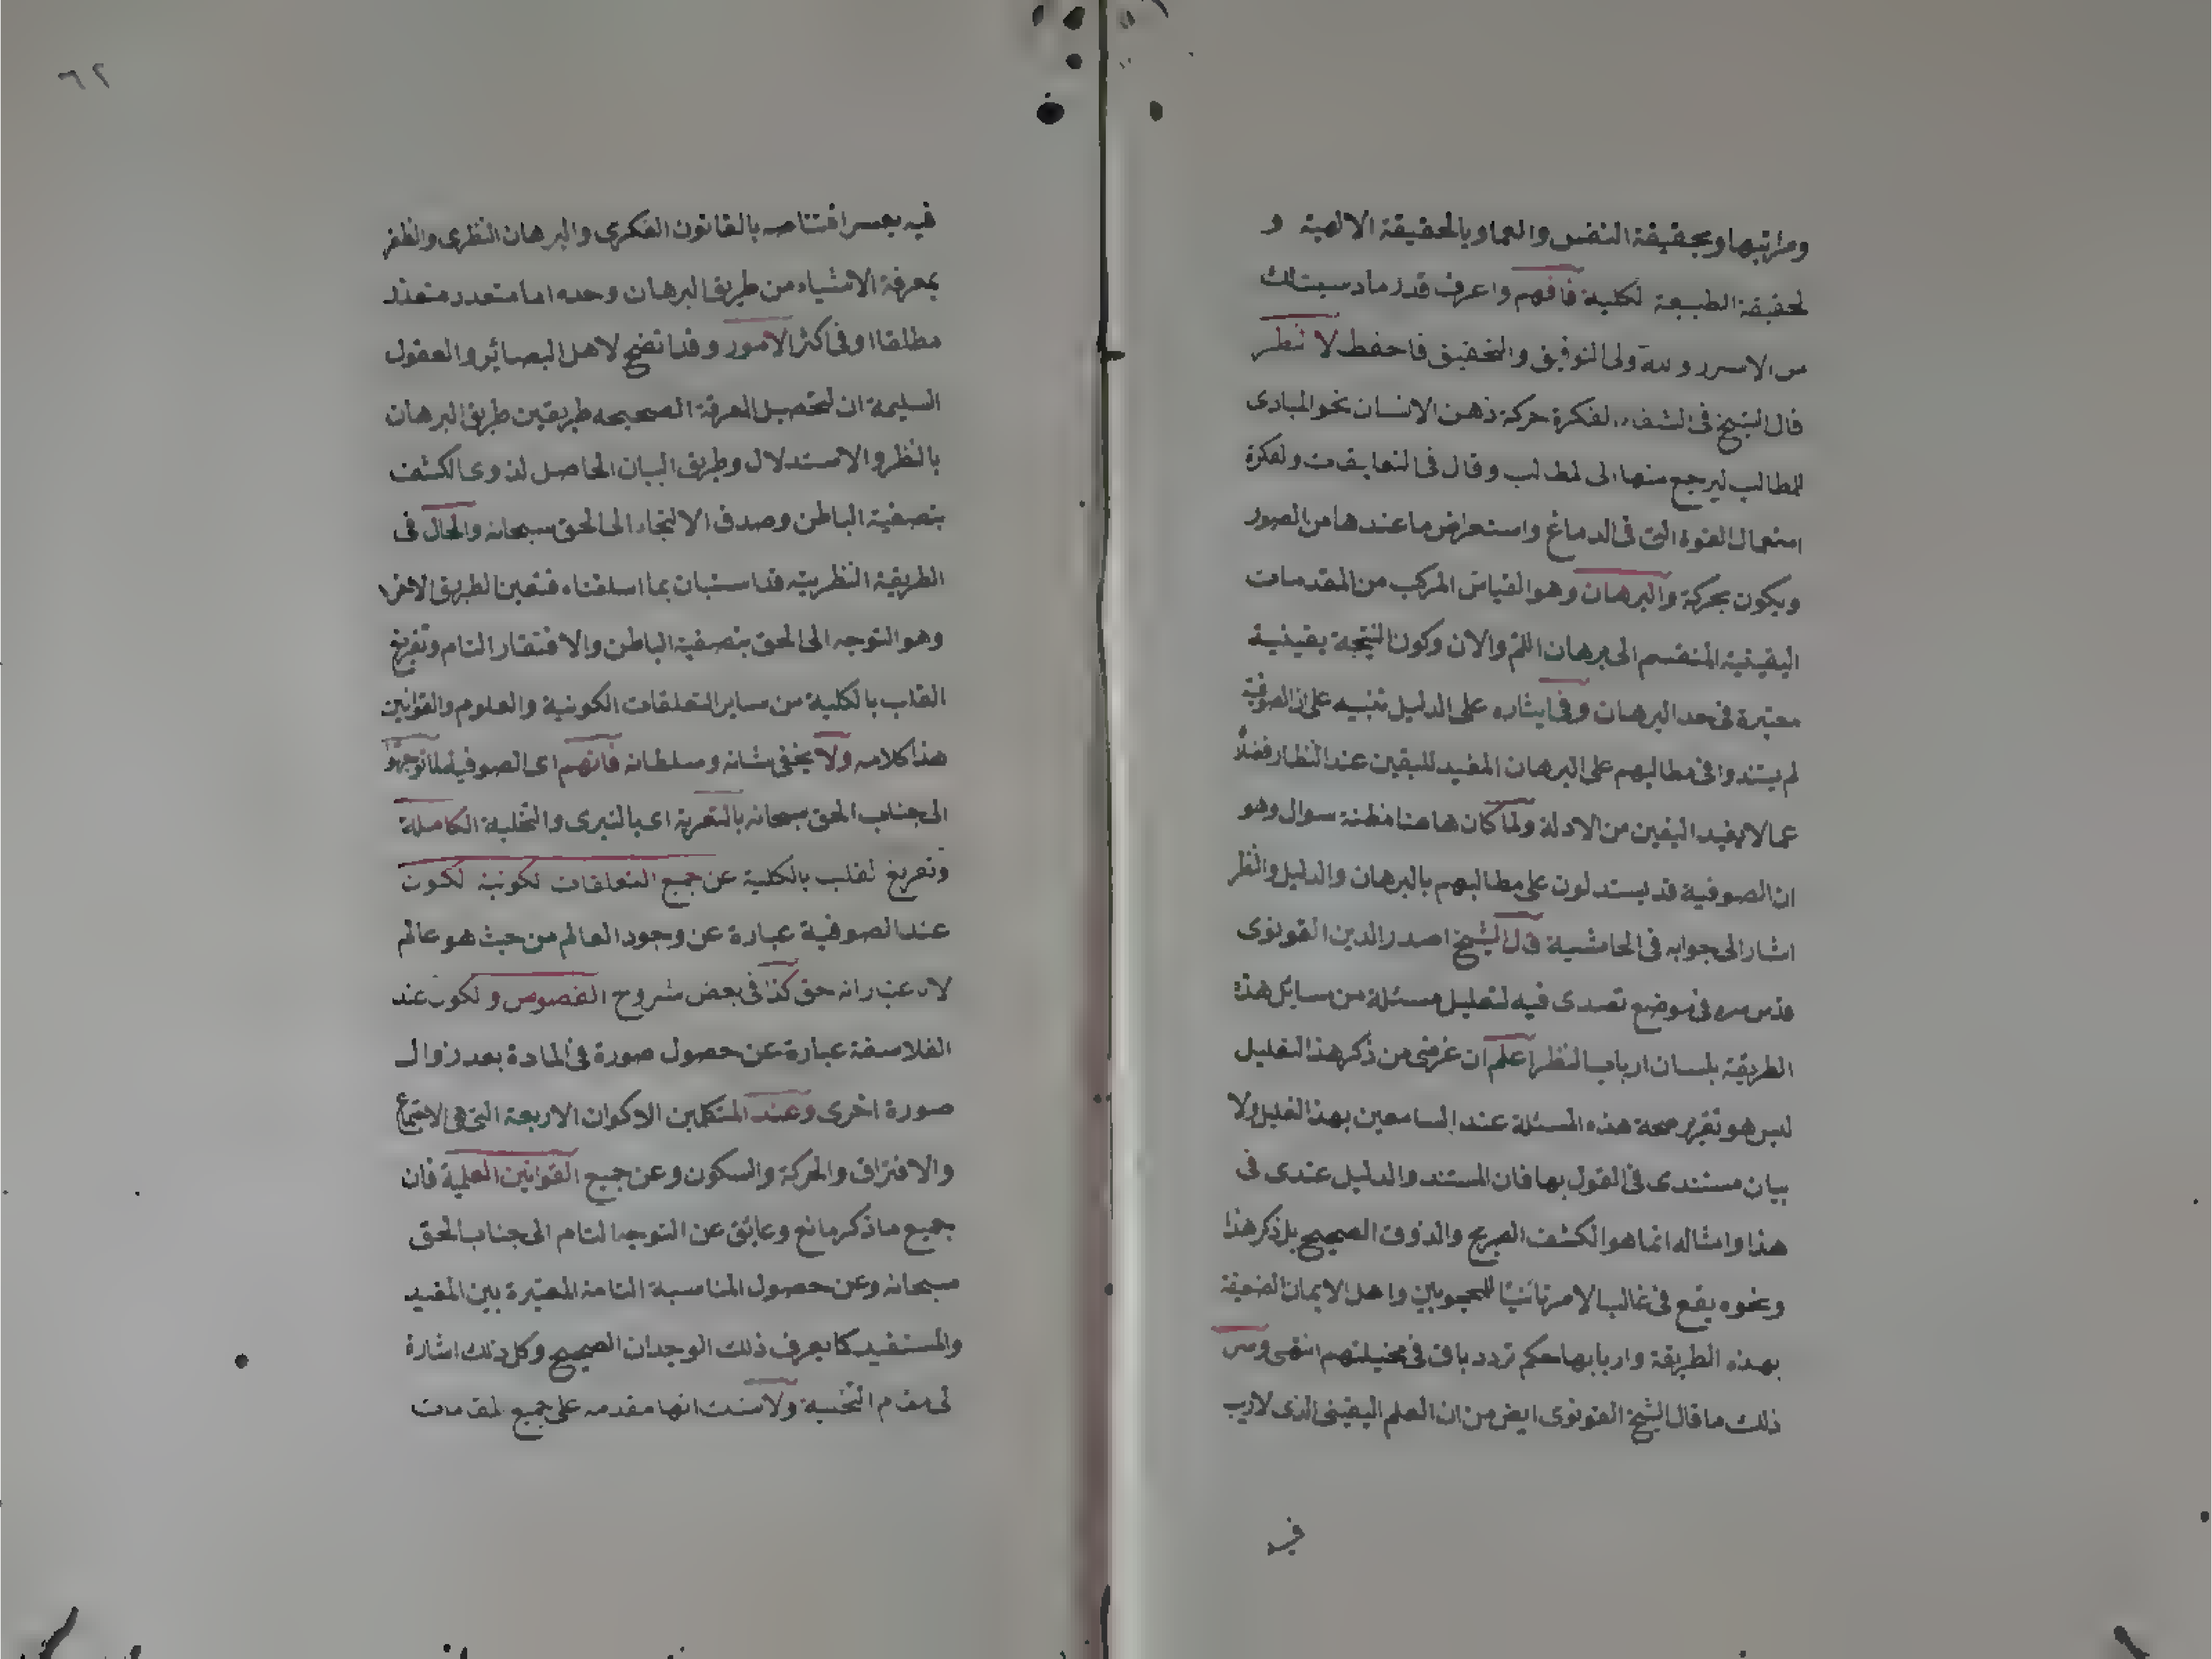 ومراتبها وبحقيقة النفس والعماء وبالحقيقة الالهية و
لحقيقة الطبيعة لكلية فافهم واعرف قدر ما دسست لك
من الاسرر و لله ولى التوفيق والتحقيق فاحفظ لا تنظر
قال الشيخ فى الشفاء لفكرة حركة ذهن الانسان نحو المبادى
للمطالب ليرجع منها الى لمطالب وقال فى لتعليقات ولفكرة
استعمال القوة التى فى الدماغ واستعراض ما عندها من الصور
ويكون بحركة والبرهان وهو القياس المركب من المقدمات
اليقينية المنقسم الى برهان اللم والان وكون النتيجة يقينية
معتبرة فى حد البرهان وفى ايثاره على الدليل تنبيه على ان الصوفية
لم يستندوا فى مطالبهم على البرهان المفيد لليقين عند النظار فضلا
عما لا يفيد اليقين من الادلة ولما كان هاهنا مظنة سوال وهو
ان الصوفية قد يستدلون على مطالبهم بالبرهان والدليل والنظر
اشار الى جوابه فى الحاشية قال الشيخ صدر الدين القونوى
قدس سره فى موضع تصدى فيه لتعليل مسئلة من سايل هذه
الطريقة بلسان ارباب النظر اعلم ان غرضى من ذكر هذا التعليل
ليس هو تقرير صحة هذه المسئلة عند السامعين بهذا التعليل ولا
بيان مستندى فى القول بها فان المستند والدليل عندى فى
هذا وامثاله انما هو الكشف الصريح والذوق الصحيح بل ذكر هذا
ونحوه يقع فى غالب الامر تانيسا للمحجوبين واهل الايمان لضعيفة
بهذه الطريقة واربابها حكم تردد باق فى مخيلتهم انتهى ومن
ذلك ما قال الشيخ القونوى ايض من ان العلم اليقينى الذى لا ريب
فيه
٦٢
فيه يعسر اقتناصه بالقانون الفكرى والبرهان النظرى والظفر
بمعرفة الاشياء من طريق البرهان وحده اما متعدد متعذر
مطلقا او فى اكثر الامور وقد اتضح لاهل البصائر والعقول
السليمة ان لتحصيل المعرفة الصحيحه طريقين طريق البرهان
بالنظر والاستدلال وطريق البيان الحاصل لذوى الكشف
بتصفية الباطن وصدق الالتجاء الى الحق سبحانه والحال فى
الطريقة النظرية قد استبان بما اسلفناه فتعين الطريق الاخر
وهو التوجه الى الحق بتصفية الباطن والافتقار التام وتفريغ
القلب بالكلية من ساير التعلقات الكونية والعلوم والقوانين
هذا كلامه ولا يخفى شانه وسلطانه فانهم اى الصوفية لما توجهوا
الى جناب الحق سبحانه بالتعرية اى بالتبرى والتخلية الكاملة
وتفريغ لقلب بالكلية عن جميع التعلقات لكونية لكون
عند الصوفية عبارة عن وجود العالم من حيث هو عالم
لا باعتبار انه حق كذا فى بعض شروح الفصوص و لكون عند
الفلاسفة عبارة عن حصول صورة فى المادة بعد زوال
صورة اخرى وعند المتكلمين الاكوان الاربعة التى هى الاجتماع
والافتراق والحركة والسكون وعن جميع القوانين العلمية فان
جميع ما ذكر مانع وعائق عن التوجه التام الى جناب الحق
سبحانه وعن حصول المناسبة التامة المعتبرة بين المفيد
والمستفيد كما يعرف ذلك الوجدان الصحيح وكل ذلك اشارة
لى مقام التخلية ولا شك انها مقدمه على جميع لمقدمات